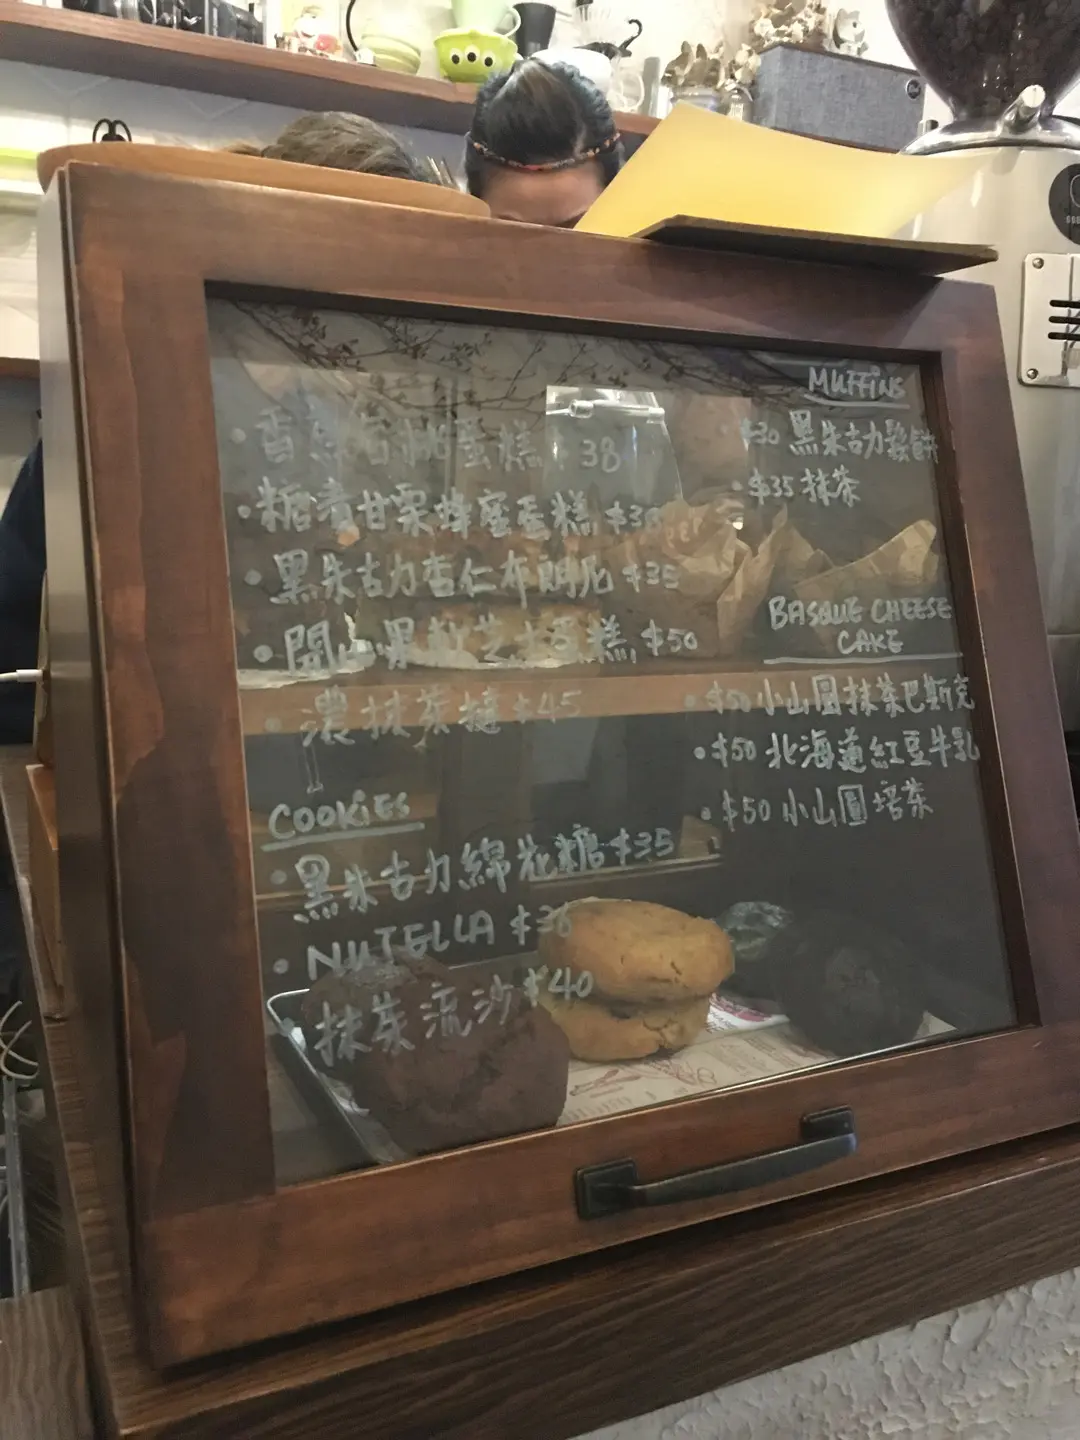 蛋糕 38
糖漬甘栗蜂蜜蛋糕 $38
黑朱古力杏仁布朗尼 $35
開心果軟芝士蛋糕 $50
濃抹茶撻 $45
COOKIES
黑朱古力綿花糖 $35
NUTELLA $38
抹茶流沙 $40
MUFFINS
$30 黑朱古力鬆餅
$35 抹茶
BASQUE CHEESE
CAKE
$50 小山圓抹茶巴斯克
$50 北海道紅豆牛乳
$50 小山圓焙茶